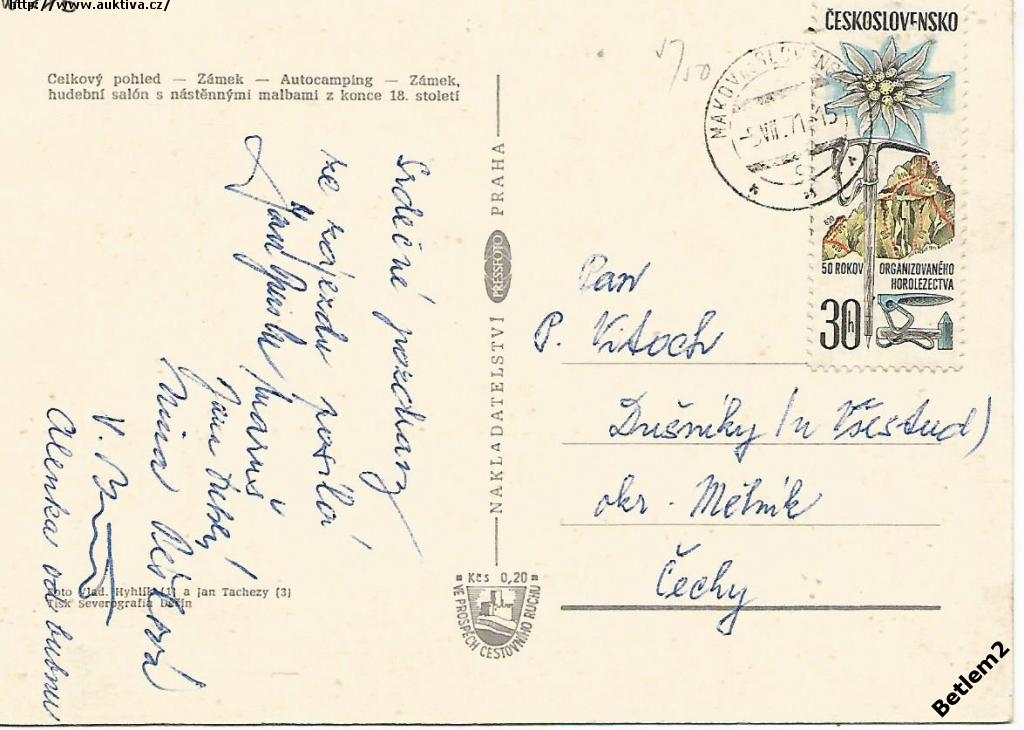 http://www.auktiva.cz/
Celkový pohled — Zámek — Autocamping — Zámek,
hudební salón s nástěnnými malbami z konce 18. století
Srdečné pozdravy
ze zájezdu posílá
Jana
Alenka od bubnu
V.
NAKLADATELSTVÍ PRESSFOTO PRAHA
Foto Vlad. Hyhlík (1) a Jan Tachezy (3)
Tisk Severografia Děčín
Kčs 0,20
VE PROSPĚCH CESTOVNÍHO RUCHU
ČESKOSLOVENSKO
50 ROKOV ORGANIZOVANÉHO
HOROLEZECTVA
30h
VII. 71-15
Pan
P. Vitoch
Dušníky (u Všestud)
okr. Mělník
Čechy
Betlem2